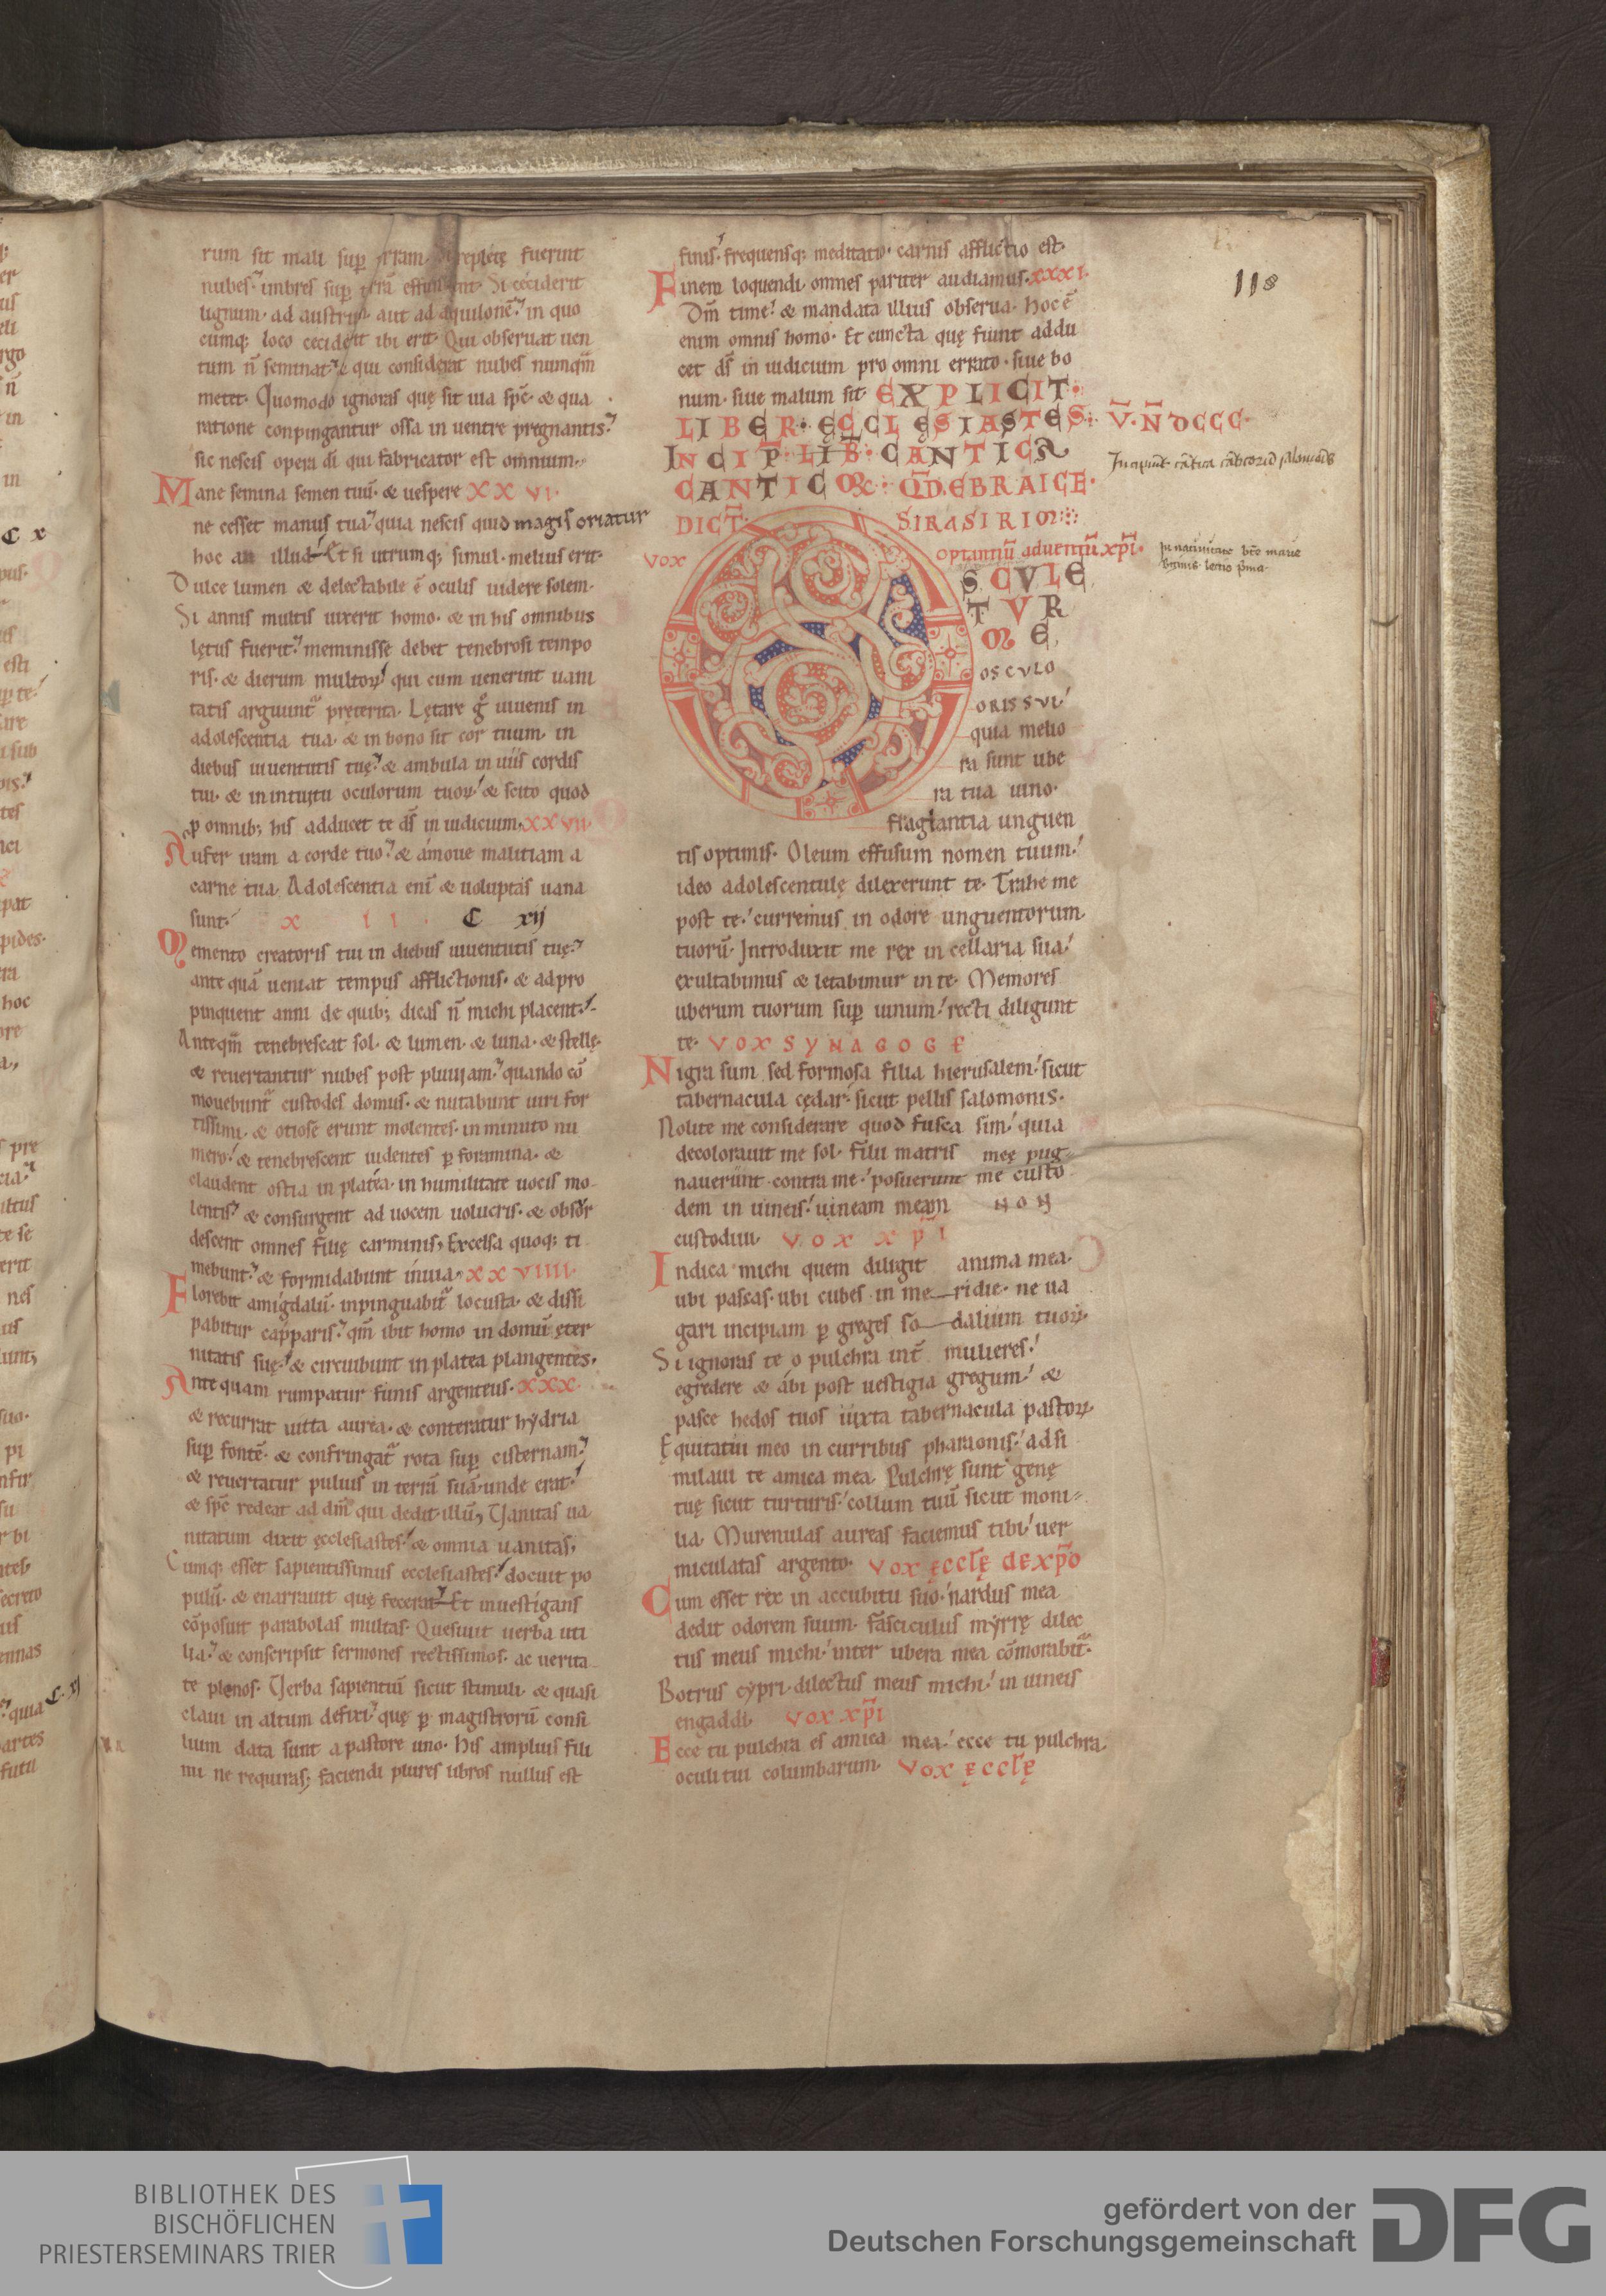 rum sit mali sup̄ t̄rram. Si replete fuerint
nubes. imbres sup̄ t̄rā effundent. Si ceciderit
lignum. ad austrū aut ad aquilonē. in quo
cumq; loco ceciderit ibi erit. Qui obseruat uen
tum n̄ seminat. & qui considerat nubes numq̄m
metet. Quomodo ignoras quę sit uia sp̄c. & qua
ratione conpingantur ossa in uentre pregnantis.
sic nescis opera dī qui fabricator est omnium.
Mane semina semen tuū. & uespere XXVI.
ne cesset manus tua. quia nescis quid magis oriatur
hoc an illud. Et si utrumq; simul. melius erit.
Dulce lumen & delectabile ē oculis uidere solem.
Si annis multis uixerit homo. & in his omnibus
lętus fuerit. meminisse debet tenebrosi tempo
ris. & dierum multoꝝ qui cum uenerint uani
tatis arguunt̄ preterita. Lętare g̊ iuuenis in
adolescentia tua. & in bono sit cor tuum. in
diebus iuuentutis tuę. & ambula in uiis cordis
tui. & in intuitu oculorum tuoꝝ. & scito quod
p omnib; his adducet te dſ in iudicium. XXVII.
Aufer iram a corde tuo. & amoue malitiam a
carne tua. Adolescentia enī & uoluptas uana
sunt. X I I . C xij
Memento creatoris tui in diebus iuuentutis tuę.
ante quā ueniat tempus afflictionis. & adpro
pinquent anni de quib; dicas n̄ michi placent.
Anteq̄m tenebrescat sol. & lumen. & luna. & stellę.
& reuertantur nubes post pluuiam. quando cō
mouebunt̄ custodes domus. & nutabunt uiri for
tissimi. & otiose erunt molentes. in minuto nu
mero. & tenebrescent uidentes p foramina. &
claudent ostia in platea. in humilitate uocis mo
lentis. & consurgent ad uocem uolucris. & obsor
descent omnes filię carminis. Excelsa quoq; ti
mebunt. & formidabunt in uia. XXVIIII.
Florebit amigdalū. inpinguabit̄ locusta. & dissi
pabitur capparis. q̄m ibit homo in domū ęter
nitatis suę. & circuibunt in platea plangentes.
Ante quam rumpatur funis argenteus. XXX.
& recurrat uitta aurea. & conteratur hydria
sup̄ fontē. & confringat̄ rota sup̄ cisternam.
& reuertatur puluis in terrā suā. unde erat.
& sp̄c redeat ad dm̄ qui dedit illū. Uanitas ua
nitatum dixit ęcclesiastes. & omnia uanitas.
Cumq; esset sapientissimus ecclesiastes. docuit po
pulū. & enarrauit quę fecerat. Et inuestigans
cōposuit parabolas multas. Quesiuit uerba uti
lia. & conscripsit sermones rectissimos. ac uerita
te plenos. Uerba sapientiū sicut stimuli. & quasi
claui in altum defixi. quę p magistrorū consi
lium data sunt a pastore uno. His amplius fili
mi ne requiras; faciendi plures libros nullus est
finis. frequensq; meditatio. carnis afflictio est.
Finem loquendi. omnes pariter audiamus. XXXI.
Dm̄ time. & mandata illius obserua. Hoc ē
enim omnis homo. Et cuncta quę fiunt addu
cet dſ in iudicium pro omni errato. siue bo
num. siue malum sit. EXPLICIT.
LIBER. ĘCCLĘSIASTES: V̄. N̄ DCCC.
INCIP̄. LIB̄. CANTICA
CANTICOꝜ: QD̄. EBRAICE.
DICT̄. SIRASIRIM:
118
Incipiunt cātica cāticorū salomōis
VOX optantiū aduentū xp̄i.
In natiuitate bt̄e marie
v̄ginis. lectio p̄ma.
OSCVLE
TVR
ME
OSCVLO
ORIS SVI.
quia melio
ra sunt ube
ra tua uino.
fraglantia unguen
tis optimis. Oleum effusum nomen tuum.
ideo adolescentulę dilexerunt te. Trahe me
post te. curremus in odore unguentorum
tuorū. Introduxit me rex in cellaria sua.
exultabimus & letabimur in te. Memores
uberum tuorum sup̄ uinum. recti diligunt
te. VOX SYNAGOGĘ
Nigra sum sed formosa filia hierusalem. sicut
tabernacula cędar. sicut pellis salomonis.
Nolite me considerare quod fusca sim. quia
decolorauit me sol. Filii matris meę pug
nauerunt contra me. posuerunt me custo
dem in uineis. uineam meam NON
custodiui. VOX XP̄I
Indica michi quem diligit anima mea.
ubi pascas. ubi cubes in meridie. ne ua
gari incipiam p greges sodalium tuoꝝ.
Si ignoras te o pulchra int̄ mulieres.
egredere & abi post uestigia gregum. &
pasce hedos tuos iuxta tabernacula pastoꝝ.
Equitatui meo in curribus pharaonis. adsi
milaui te amica mea. Pulchrę sunt genę
tuę sicut turturis. collum tuū sicut moni
lia. Murenulas aureas faciemus tibi. uer
miculatas argento. VOX ĘCCLĘ DE XP̄O
Cum esset rex in accubitu suo. nardus mea
dedit odorem suum. Fasciculus myrrę dilec
tus meus michi. inter ubera mea cōmorabit̄.
Botrus cypri dilectus meus michi. in uineis
engaddi. VOX XP̄I
Ecce tu pulchra es amica mea. ecce tu pulchra.
oculi tui columbarum. VOX ĘCCLĘ
BIBLIOTHEK DES
BISCHÖFLICHEN
PRIESTERSEMINARS TRIER
gefördert von der
Deutschen Forschungsgemeinschaft
DFG